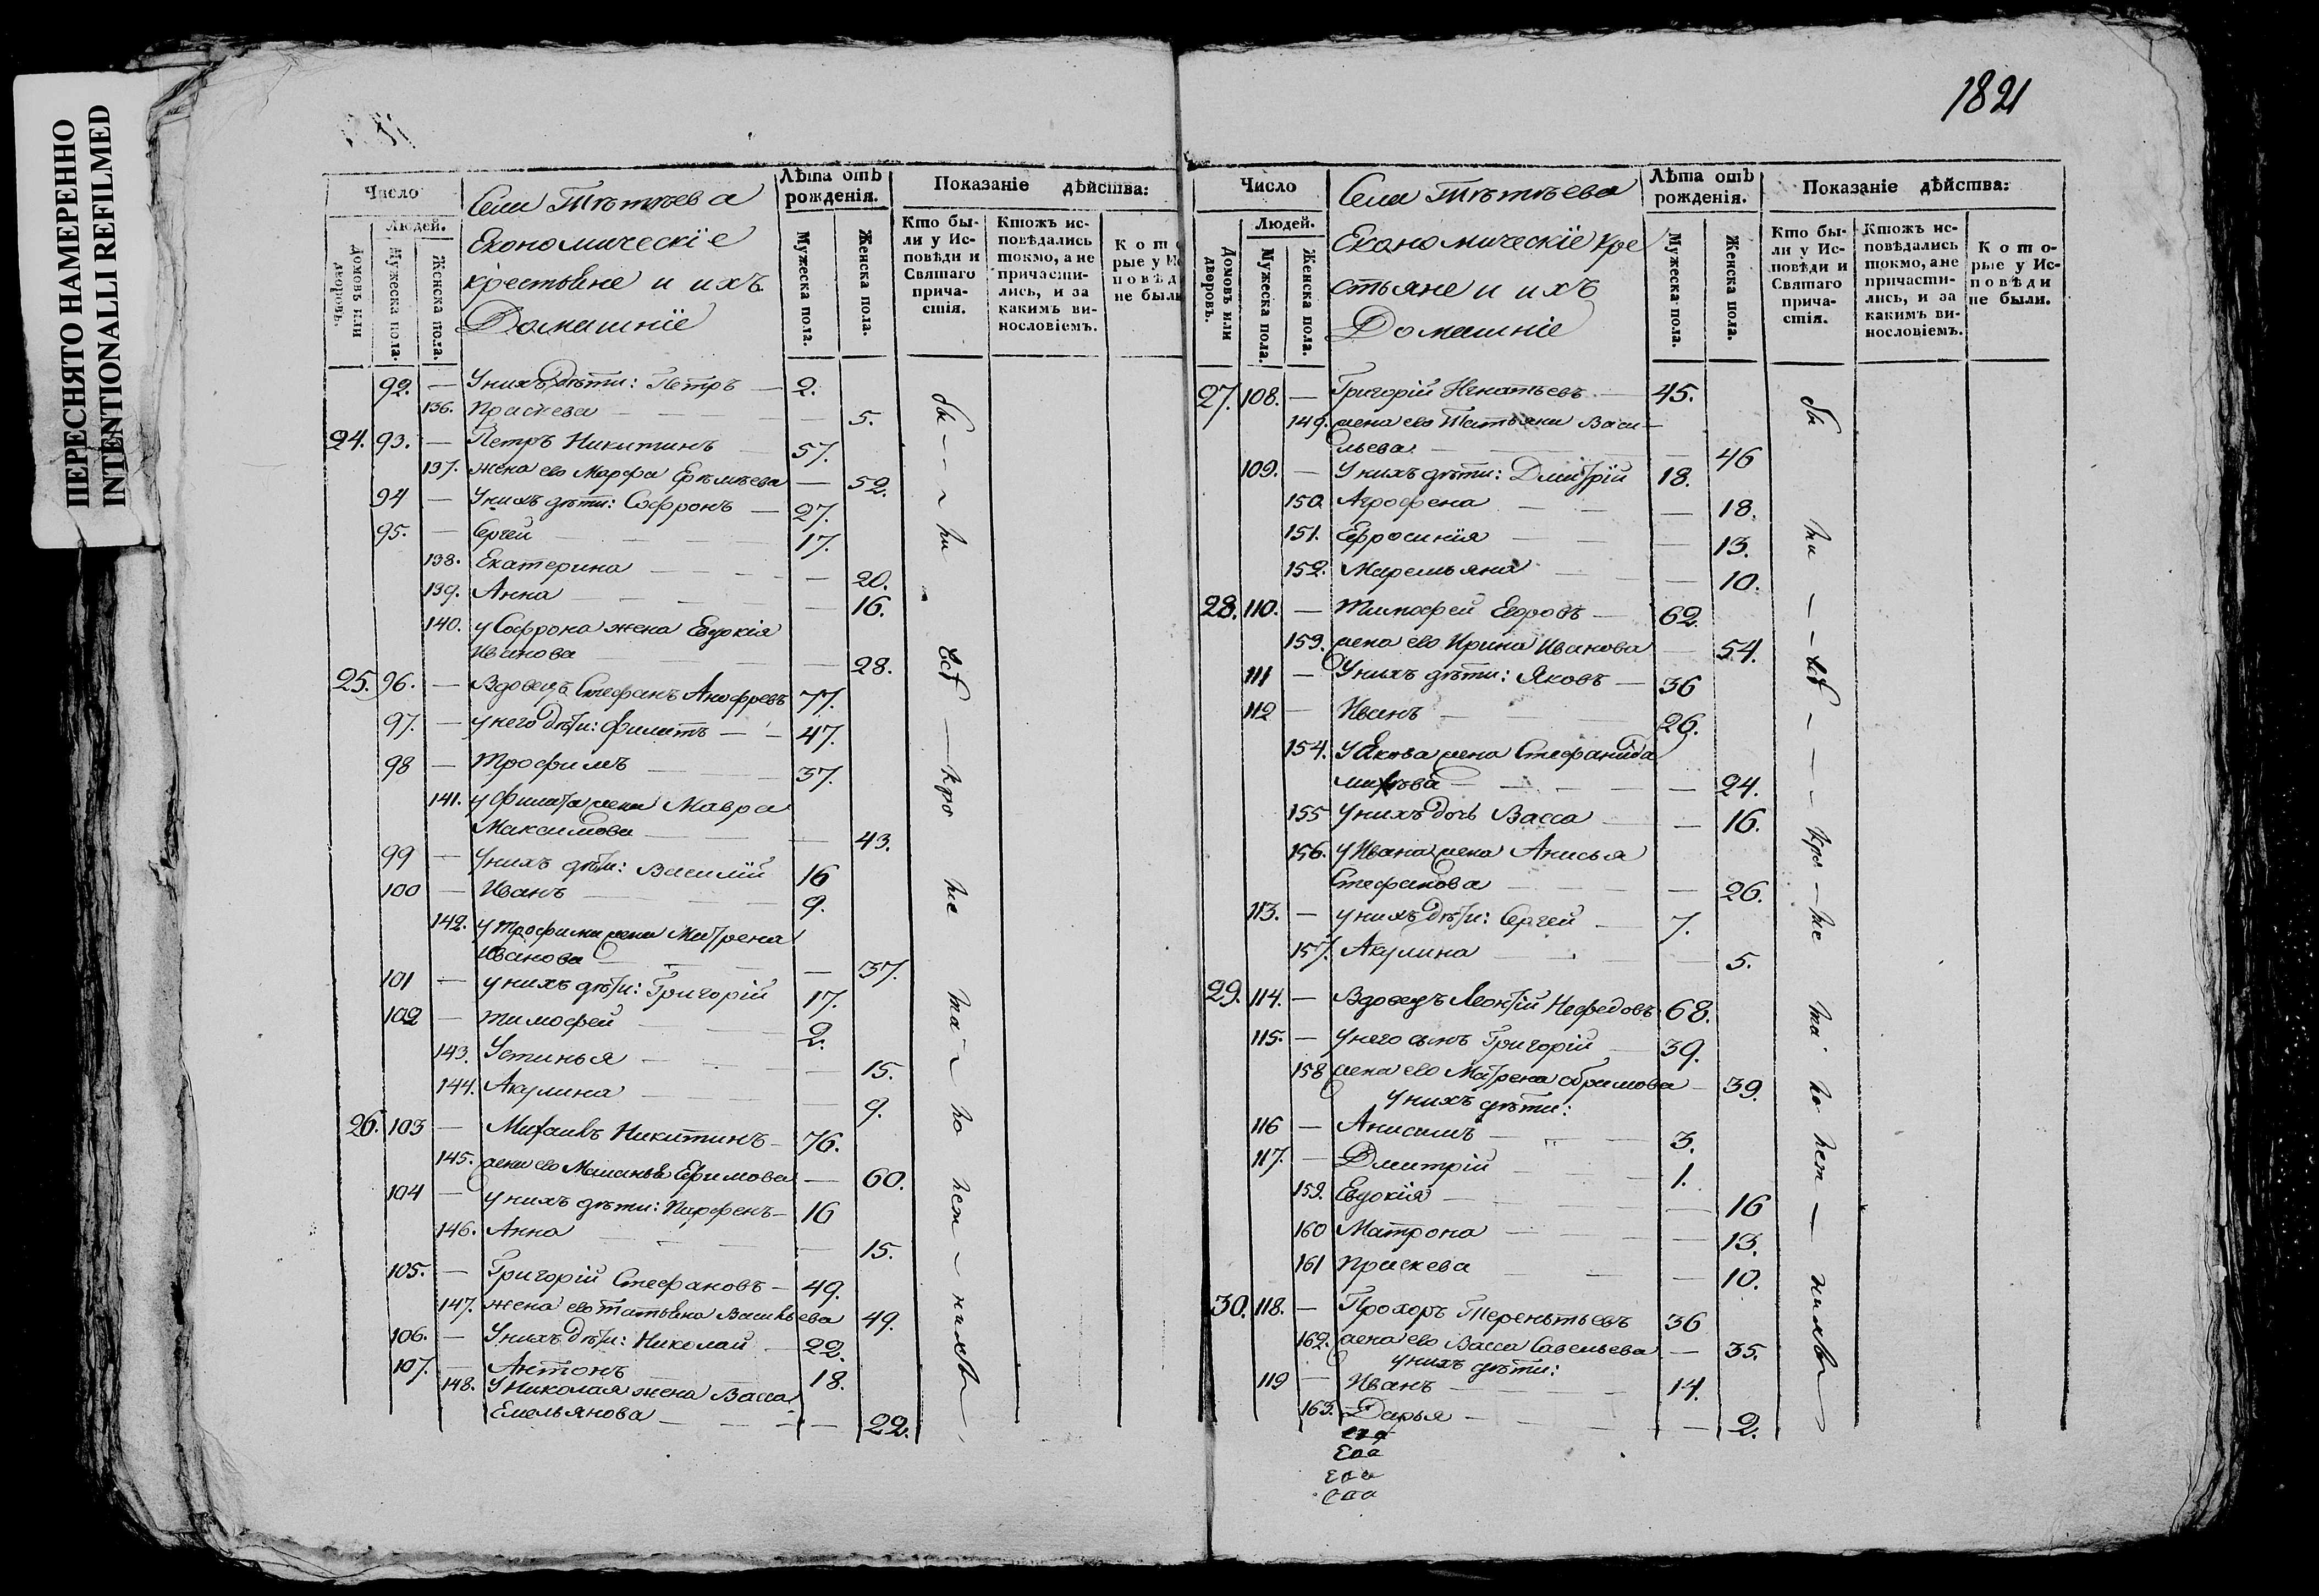 ПЕРЕСНЯТО НАМЕРЕННО
INTENTIONALLI REFILMED
1821
Число
Людей.
Домовъ или дворовъ.
Мужеска пола.
Женска пола.
Села Тѣтѣева
Економическїе
крестьяне и ихъ
Домашнїе
Лѣта отъ рожденія.
Мужеска пола.
Женска пола.
Показаніе дѣйства:
Кто бы-
ли у Ис-
повѣди и
Святаго
прича-
стія.
Ктожъ ис-
повѣдались
токмо, а не
причасти-
лись, и за
какимъ ви-
нословіемъ.
Кото
рые у Ис
повѣд
не были
92. — У нихъ дѣти: Петръ — 2.
136. Праскева — 5.
24. 93. — Петръ Никитинъ 57.
137. жена ево Марфа Ерѣмѣева — 52.
94 — У нихъ дѣти: Софронъ — 27.
95. — Сергей — 17.
138. Екатерина — 20.
139. Анна — 16.
140. у Софрона жена Евдокїя
Иванова — 28.
25. 96. — Вдовецъ Стефанъ Анофревъ 77.
97. — у него дѣти: Филатъ — 47.
98 — Трофимъ — 37.
141. у Филата жена Мавра
Максимова — 43.
99 — У нихъ дѣти: Василїй 16
100 — Иванъ — 9.
142. у Трофима жена Матрена
Иванова — 37.
101 — у нихъ дѣти: Григорїй 17.
102 — Тимофей — 2.
143. Устинья — 15.
144. Акулина — 9.
26. 103 — Михаилъ Никитинъ — 76.
145. жена ево Маланья Ефимова — 60.
104 — у нихъ дѣти: Парфенъ — 16
146. Анна — 15.
105. — Григорїй Стефановъ — 49.
147. жена ево Татьяна Васильева 49.
106. — У нихъ дѣти: Николай — 22.
107. — Антонъ 18.
148. У Николая жена Васса
Емельянова — 22.
бы — — ли всѣ — кро ме ма — ло лет — нихъ
Число
Людей.
Домовъ или дворовъ.
Мужеска пола.
Женска пола.
Села Тѣтѣева
Економическїе кре
стьяне и ихъ
Домашнїе
Лѣта отъ рожденія.
Мужеска пола.
Женска пола.
Показаніе дѣйства:
Кто бы-
ли у Ис-
повѣди и
Святаго
прича-
стія.
Ктожъ ис-
повѣдались
токмо, а не
причасти-
лись, и за
какимъ ви-
нословіемъ.
Кото-
рые у Ис-
повѣди
не были.
27. 108. — Григорїй Игнатьевъ — 45.
149. жена ево Татьяна Васи-
льева — 46
109. — У нихъ дѣти: Дмитрїй 18.
150. Агрофена — 18.
151. Ефросинїя — 13.
152. Маремьяна — 10.
28. 110. — Тимофей Егоровъ — 62.
153. жена ево Ирина Иванова — 54.
111 — У нихъ дѣти: Яковъ — 36
112 — Иванъ — 26.
154. у Якова жена Стефанида
— 24.
155 У нихъ дочь Васса — 16.
156. у Ивана жена Анисья
Стефанова — 26.
113. — у нихъ дѣти: Сергей — 7.
157. Акулина — 5.
29. 114. — Вдовецъ Леонтїй Нефедовъ 68.
115. — У него сынъ Григорїй — 39.
158 жена ево Матрена — 39.
У нихъ дѣти:
116 — Анисимъ — 3.
117. — Дмитрїй — 1.
159. Евдокїя — 16
160 Матрона — 13.
161 Праскева — 10.
30. 118. — Прохоръ Терентьевъ 36
162. жена ево Васса Савельева — 35.
у нихъ дѣти:
119 — Иванъ — 14.
163. Дарья — 2.
бы ли — — всѣ — — кро — ме ма ло лет — нихъ